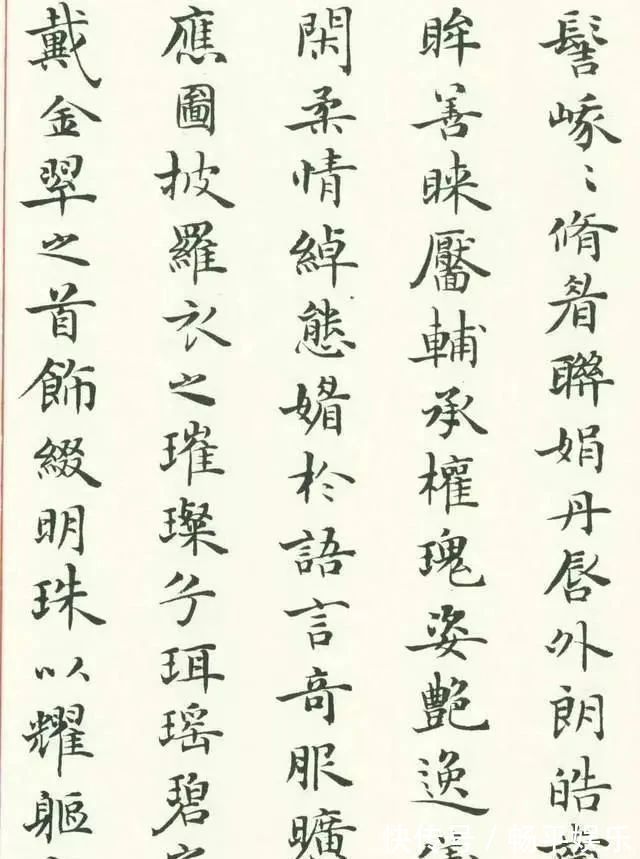 髻峩〻脩眉聯娟丹唇外朗皓
眸善睞靨輔承權瑰姿艷逸
閑柔情綽態媚於語言奇服曠
應圖披羅衣之璀璨兮珥瑶碧
戴金翠之首飾綴明珠以耀軀
快传号／畅平娱乐